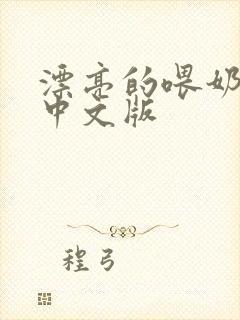 漂亮的喂奶
中文版
程弓